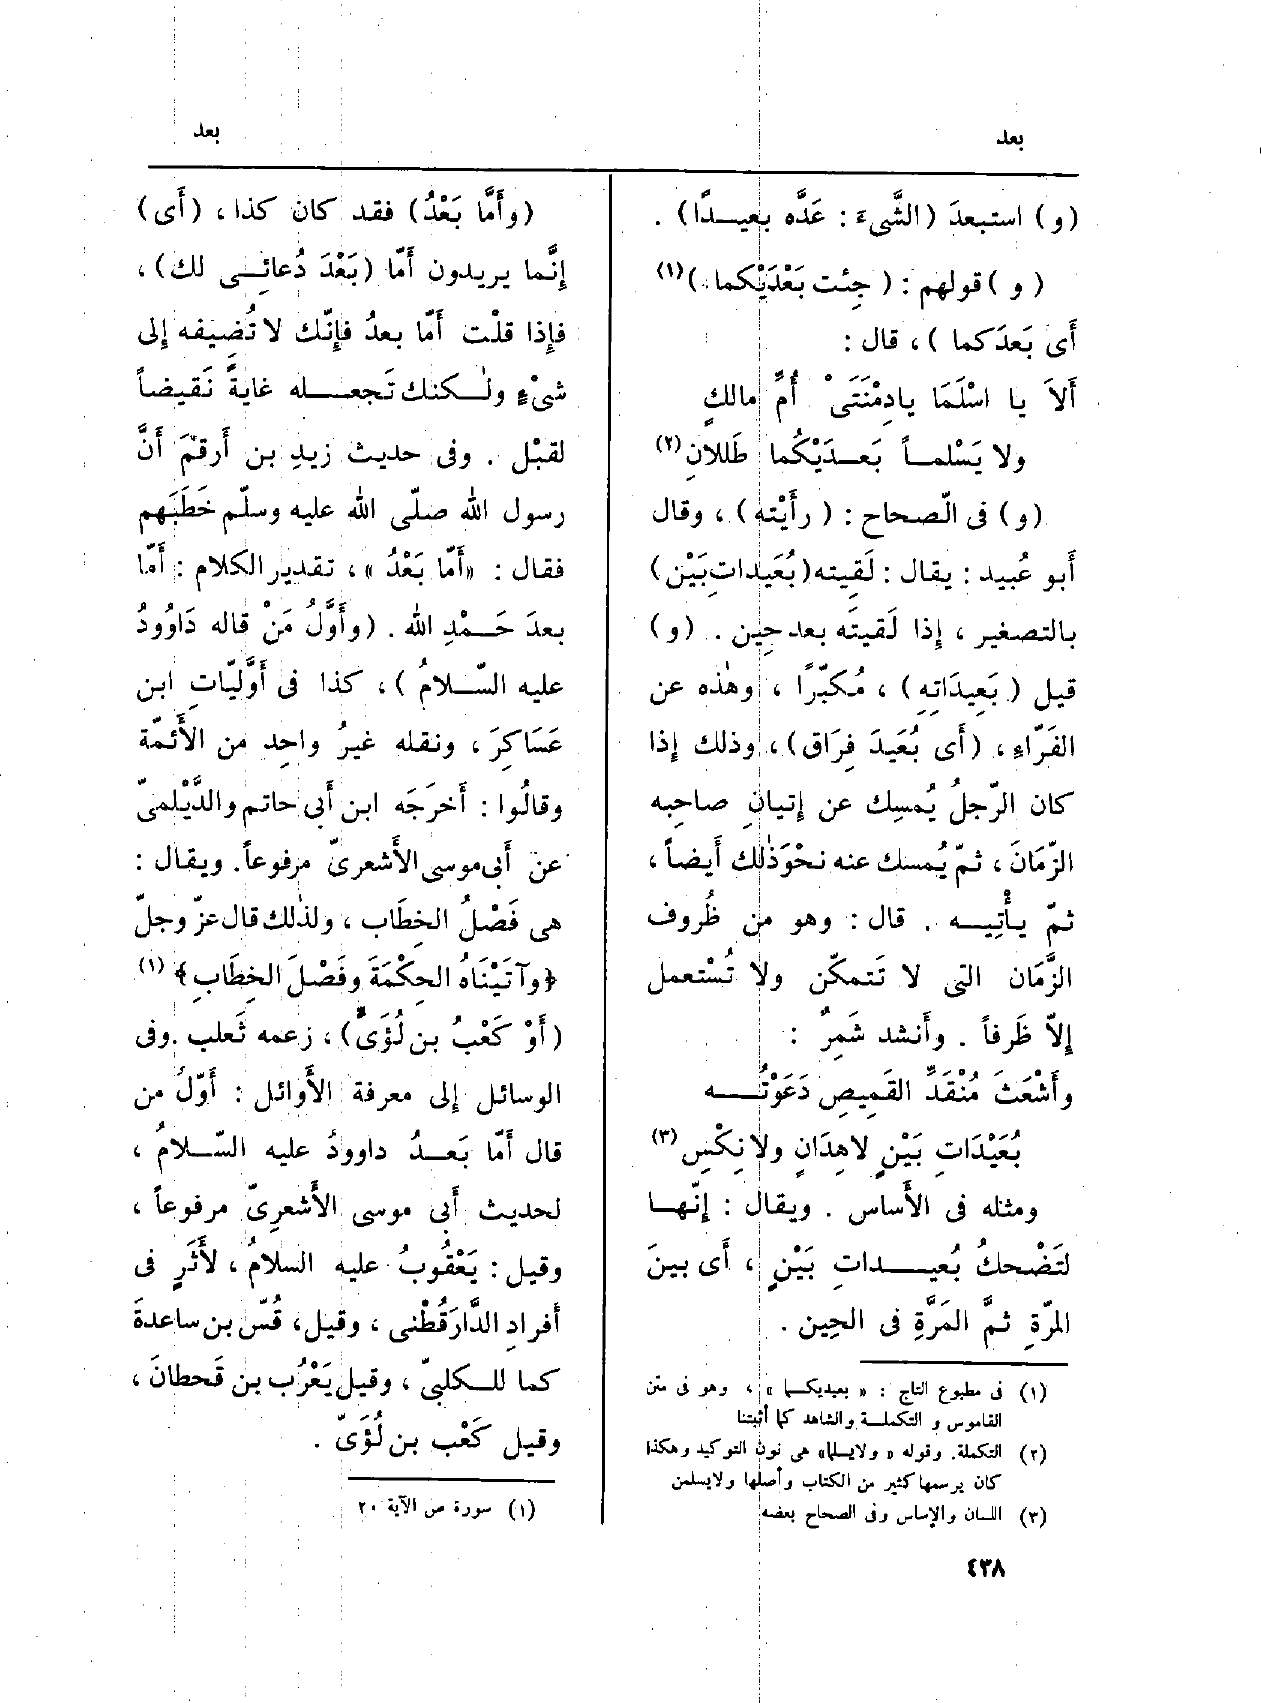 بعد
بعد
(و) استبعدَ (الشَّىءَ : عَدَّه بعيــدًا) .
( و ) قولهم : ( جِئت بَعْدَيْكما )(١)
أَى بَعدَكما ) ، قال :
أَلاَ يا اسْلَمَا يادِمْنَتَىْ أُمِّ مالكٍ
ولا يَسْلمــاً بَعــدَيْكُما طَللانِ(٢)
(و) فى الصّحاح : ( رأَيْته ) ، وقال
أَبو عُبيد : يقال : لَقِيته(بُعَيدات بَيْن)
بالتصغير ، إذا لَقيتَه بعد حِين . (و)
قيل ( بَعِيدَاتِهِ ) ، مُكبّرًا ، وهٰذه عن
الفَرّاءِ ، (أَى بُعَيدَ فِرَاق) ، وذلك إذا
كان الرّجلُ يُمسِك عن إتيانِ صاحبه
الزّمَانَ ، ثمّ يُمسك عنه نحْوَذٰلك أَيضاً ،
ثمّ يأْتِيــه . قال : وهو من ظُروف
الزَّمَان التى لا تَتمكّن ولا تُسْتعمل
إلاّ ظَرفاً . وأَنشد شَمِرٌ :
وأَشْعَثَ مُنْقَدِّ القَميصِ دَعَوْتُــه
بُعَيْدَاتِ بَيْنٍ لاهِدَانٍ ولانِكْسِ(٣)
ومثله فى الأَساس . ويقال : إنّهــا
لتَضْحكُ بُعيــداتِ بَيْنٍ ، أَى بينَ
المَرّةِ ثمَّ المَرَّةِ فى الحِين .
(١) فى مطبوع التاج : « بعيديكــا » ، وهو فى متن
القاموس و التكملــة والشاهد كما أثبتنا
(٢) التكملة. وقوله « ولايسلما» هى نون التوكيد وهكذا
كان يرسمها كثير من الكتاب وأصلها ولايسلمن
(٣) اللسان والإساس وفى الصحاح بعضه
(وأَمَّا بَعْدُ) فقد كان كذا ، (أَى)
إنَّما يريدون أَمّا (بَعْدَ دُعائــى لك) ،
فإذا قلْت أَمّا بعدُ فإنّك لا تُضيفه إلى
شىْءٍ ولٰــكنك تَجعــله غايةً نَقيضاً
لقبْل . وفى حديث زيدِ بن أَرقمَ أَنَّ
رسول الله صلّى الله عليه وسلّم خَطَبَهم
فقال : «أَمّا بَعْدُ » ، تقدير الكلام : أَمّا
بعدَ حَــمْدِ الله . (وأَوَّلُ مَنْ قاله دَاوُودُ
عليه السّــلامُ ) ، كذا فى أَوَّليّاتِ ابن
عَسَاكِرَ ، ونقله غيرُ واحِد من الأَئمّة
وقالُوا : أَخرَجَه ابن أَبى حاتم والدَّيْلمىّ
عن أَبى موسى الأَشعرىّ مرفوعاً. ويقال :
هى فَصْلُ الخِطَاب ، ولذٰلك قال عزّ وجلّ
﴿وآتَيْنَاهُ الحِكْمَةَ وفَصْلَ الخِطَابِ﴾(١)
(أَوْ كَعْبُ بن لُؤَىٍّ) ، زعمه ثَعلب .وفى
الوسائل إلى معرفة الأَوائل : أَوّلُ من
قال أَمّا بَعــدُ داوودُ عليه السّــلامُ ،
لحديث أَبى موسى الأَشعرِىّ مرفوعاً ،
وقيل : يَعْقُوبُ عليه السلامُ ، لأَثَرٍ فى
أفرادِ الدَّارَقُطْنى ، وقيل، قُسّ بن ساعدةَ
كما للــكلبىّ ، وقيل يَعْرُب بن قَحطانَ ،
وقيل كَعْب بن لُؤَىّ .
(١) سورة ص الآية ٢٠
٤٣٨